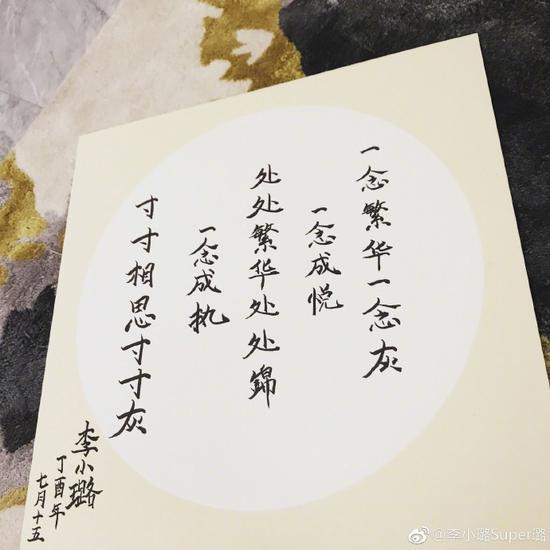 一念繁华一念灰
一念成悦
处处繁华处处錦
一念成执
寸寸相思寸寸灰
李小璐
丁酉年
七月十五
@李小璐Super璐